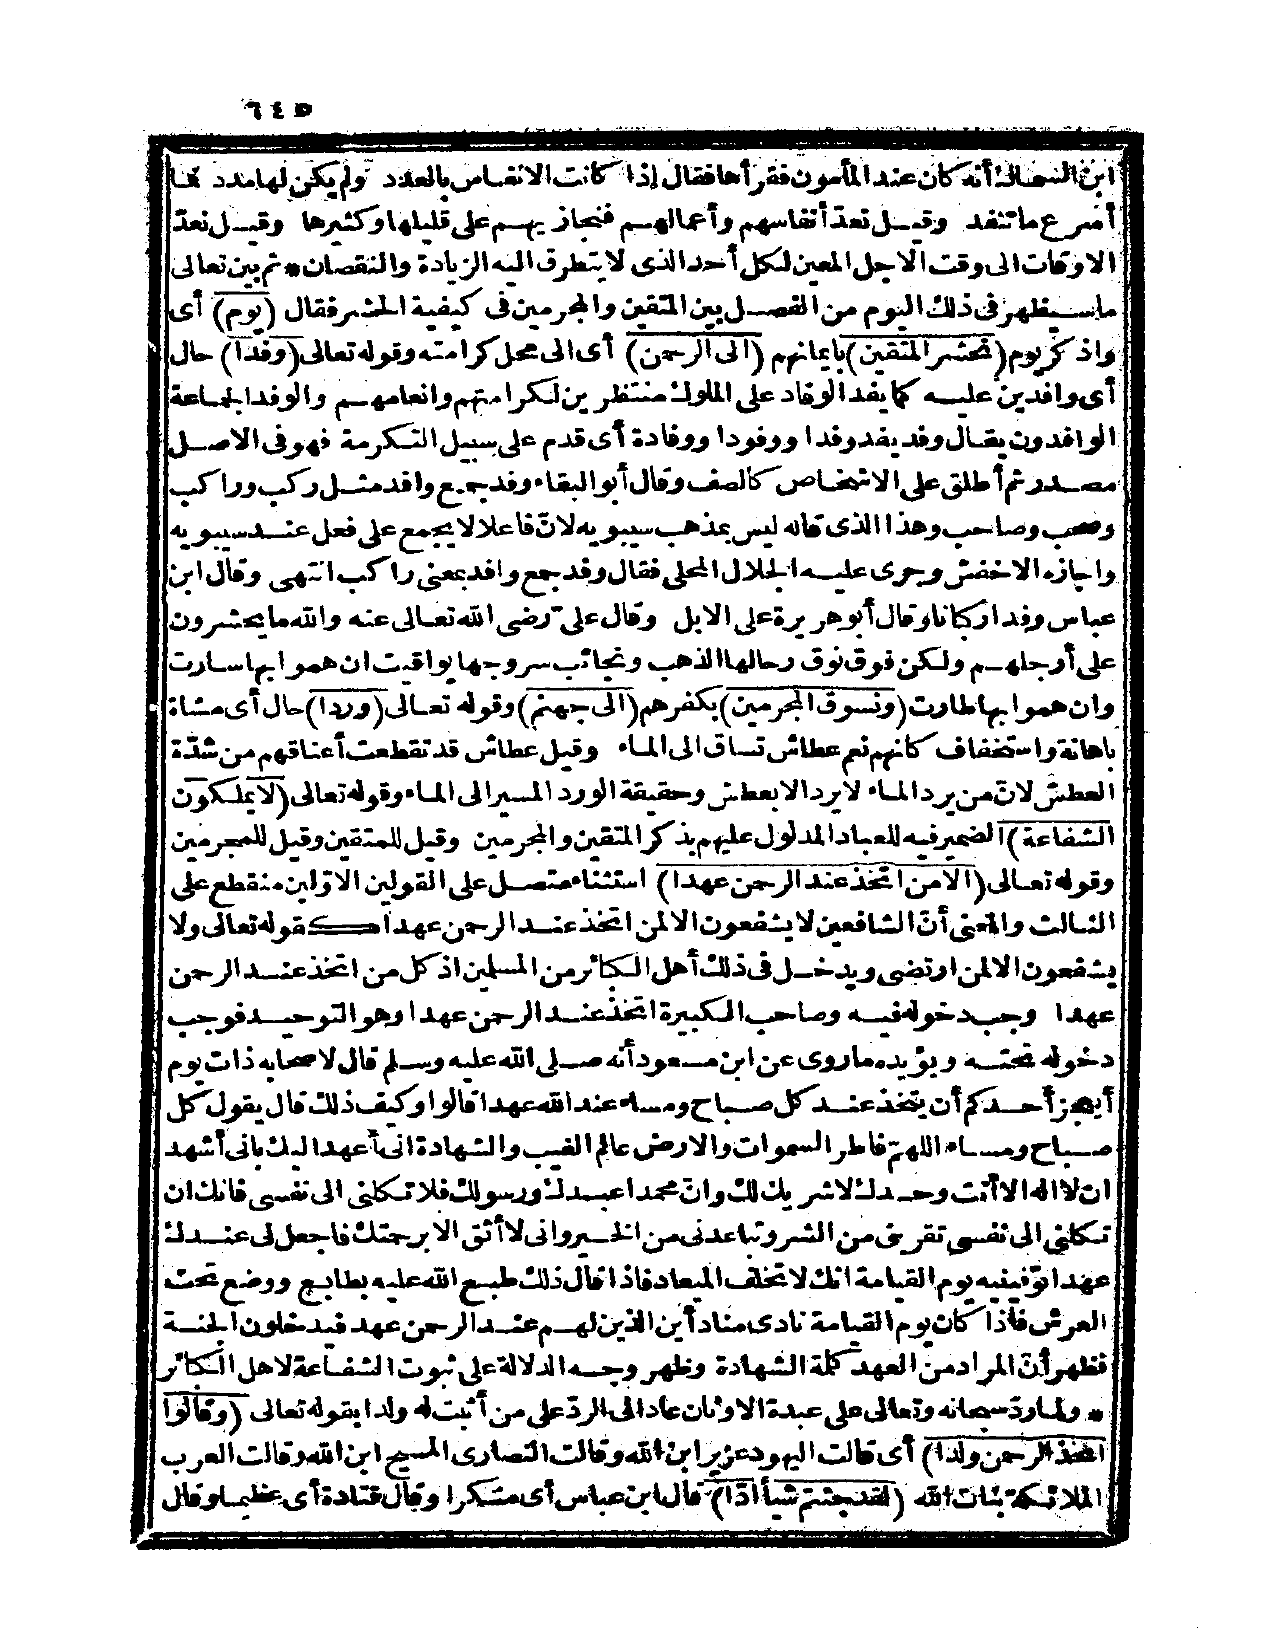 ٦٤٥
ابن السماك أنه كان عند المأمون فقرأها فقال إذا كانت الانفاس بالعدد ولم يكن لها مدد فما
أسرع ما تنفد وقيل نعدّ أنفاسهم وأعمالهم فنجازيهم على قليلها وكثيرها وقيل نعدّ
الاوقات الى وقت الاجل المعين لكل أحد الذى لا يتطرق اليه الزيادة والنقصان * ثم بين تعالى
ما سيظهر فى ذلك اليوم من الفصل بين المتقين والمجرمين فى كيفية الحشر فقال (يوم) أى
واذكر يوم (نحشر المتقين) بايمانهم (الى الرحمن) أى الى محل كرامته وقوله تعالى (وفدا) حال
أى وافدين عليه كما يفد الوفاد على الملوك منتظرين لكرامتهم وانعامهم والوفد الجماعة
الوافدون يقال وفد يفد وفدا ووفودا ووفادة أى قدم على سبيل التكرمة فهو فى الاصل
مصدر ثم أطلق على الاشخاص كالصف وقال أبو البقاء وفد جمع وافد مثل ركب وراكب
وصحب وصاحب وهذا الذى قاله ليس بمذهب سيبويه لانّ فاعلا لا يجمع على فعل عند سيبويه
واجازه الاخفش وجرى عليه الجلال المحلى فقال وفد جمع وافد بمعنى راكب انتهى وقال ابن
عباس وفدا ركبانا وقال أبو هريرة على الابل وقال علىّ رضى الله تعالى عنه والله ما يحشرون
على أرجلهم ولكن فوق نوق رحالها الذهب ونجائب سروجها يواقيت ان هموا بها سارت
وان هموا بها طارت (ونسوق المجرمين) بكفرهم (الى جهنم) وقوله تعالى (وردا) حال أى مشاة
باهانة واستخفاف كانهم نعم عطاش تساق الى الماء وقيل عطاش قد تقطعت أعناقهم من شدّة
العطش لانّ من يرد الماء لا يرد الا بعطش وحقيقة الورد المسير الى الماء وقوله تعالى (لا يملكون
الشفاعة) الضمير فيه للعباد المدلول عليهم بذكر المتقين والمجرمين وقيل للمتقين وقيل للمجرمين
وقوله تعالى (الا من اتخذ عند الرحمن عهدا) استثناء متصل على القولين الاوّلين منقطع على
الثالث والمعنى أنّ الشافعين لا يشفعون الا لمن اتخذ عند الرحمن عهدا كقوله تعالى ولا
يشفعون الا لمن ارتضى ويدخل فى ذلك أهل الكبائر من المسلمين اذ كل من اتخذ عند الرحمن
عهدا وجب دخوله فيه وصاحب الكبيرة اتخذ عند الرحمن عهدا وهو التوحيد فوجب
دخوله تحته ويؤيده ما روى عن ابن مسعود أنه صلى الله عليه وسلم قال لاصحابه ذات يوم
أيعجز أحدكم أن يتخذ عند كل صباح ومساء عند الله عهدا قالوا وكيف ذلك قال يقول كل
صباح ومساء اللهمّ فاطر السموات والارض عالم الغيب والشهادة انى أعهد اليك بانى أشهد
ان لا اله الا أنت وحدك لا شريك لك وانّ محمدا عبدك ورسولك فلا تكلنى الى نفسى فانك ان
تكلنى الى نفسى تقربنى من الشر وتباعدنى من الخير وانى لا أثق الا برحمتك فاجعل لى عندك
عهدا توفينيه يوم القيامة انك لا تخلف الميعاد فاذا قال ذلك طبع الله عليه بطابع ووضع تحت
العرش فاذا كان يوم القيامة نادى مناد أين الذين لهم عند الرحمن عهد فيدخلون الجنة
فظهر أنّ المراد من العهد كلمة الشهادة وظهر وجه الدلالة على ثبوت الشفاعة لاهل الكبائر
* ولما ردّ سبحانه وتعالى على عبدة الاوثان عاد الى الردّ على من أثبت له ولدا بقوله تعالى (وقالوا
اتخذ الرحمن ولدا) أى قالت اليهود عزير ابن الله وقالت النصارى المسيح ابن الله وقالت العرب
الملائكة بنات الله (لقد جئتم شيأ ادّا) قال ابن عباس أى منكرا وقال قتادة أى عظيما وقال